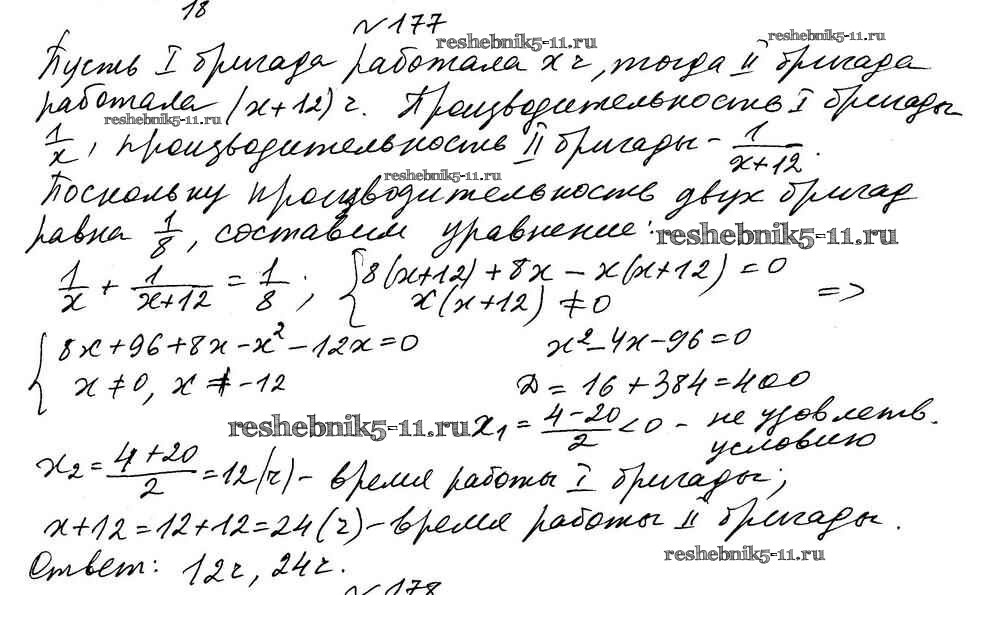 18
№177
reshebnik5-11.ru reshebnik5-11.ru
Пусть I бригада работала x ч, тогда II бригада
работала (x+12) ч. Производительность I бригады
reshebnik5-11.ru reshebnik5-11.ru
1/x, производительность II бригады - 1/(x+12).
reshebnik5-11.ru
Поскольку производительность двух бригад
равна 1/8, составим уравнение: reshebnik5-11.ru
1/x + 1/(x+12) = 1/8; { 8(x+12)+8x-x(x+12)=0
x(x+12)≠0 =>
{ 8x+96+8x-x²-12x=0 x²-4x-96=0
x≠0, x≠-12 D=16+384=400
reshebnik5-11.ru x₁=(4-20)/2<0 - не удовлетв.
условию
x₂=(4+20)/2=12(ч) - время работы I бригады;
x+12=12+12=24(ч) - время работы II бригады.
reshebnik5-11.ru
Ответ: 12ч, 24ч.
№178